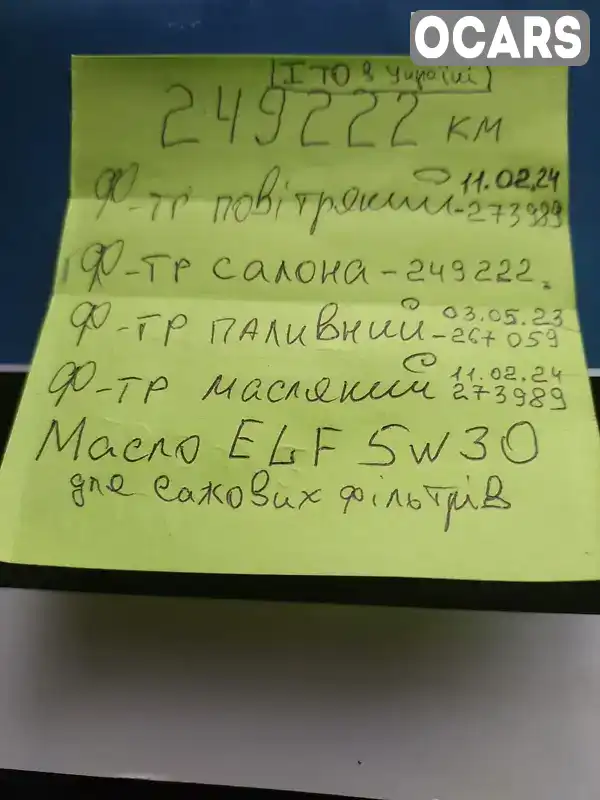 OCARS
(І ТО в Україні)
249222 км
11.02.24
Ф-тр повітряний - 273989
Ф-тр салона - 249222.
03.05.23
Ф-тр паливний - 267059
11.02.24
Ф-тр масляний 273989
Масло ELF 5W30
для сажових фільтрів